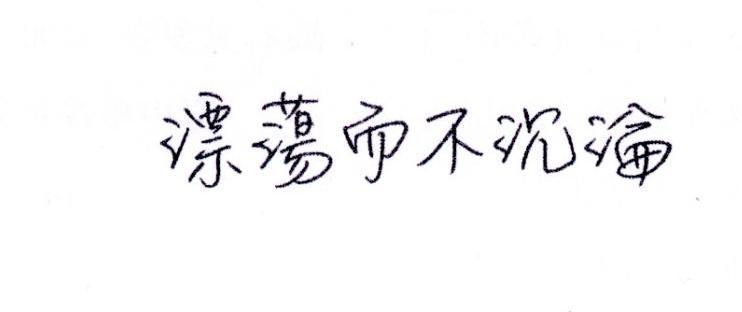 漂蕩而不沉淪